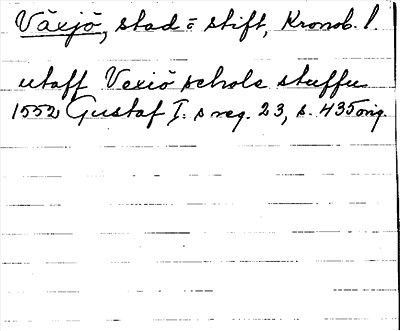 Växjö, stad = stift, Kronob. l.
utaff Vexiö schole stuffu
1552 Gustaf I:s reg. 23, s. 435 orig.